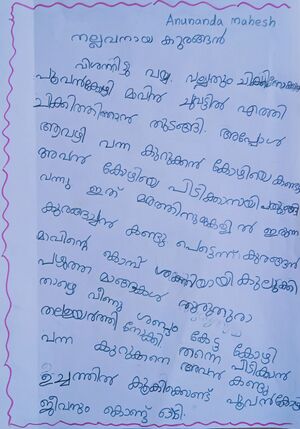 Anunanda mahesh
നല്ലവനായ കുരങ്ങൻ
വിശന്നിട്ടു വയ്യ. വല്ലതും ചിക്കി
പൂവൻകോഴി മാവിൻ ചുവട്ടിൽ എത്തി
ചിക്കിത്തിന്നാൻ തുടങ്ങി. അപ്പോൾ
ആവഴി വന്ന കുറുക്കൻ കോഴിയെ കണ്ടു
അവൻ കോഴിയെ പിടിക്കാനായി
വന്നു ഇത് മരത്തിനുമുകളിൽ ഇരുന്ന
കുരങ്ങച്ചൻ കണ്ടു പെട്ടെന്ന് കുരങ്ങൻ
മാവിന്റെ കൊമ്പ് ശക്തിയായി കുലുക്കി
പഴുത്ത മാങ്ങകൾ തുരുതുരാ
താഴെ വീണു ശബ്ദം കേട്ട കോഴി
തലയുയർത്തി നോക്കി തന്നെ പിടിക്കാൻ
വന്ന കുറുക്കനെ അവൻ കണ്ടു
ഉച്ചത്തിൽ കൂകികൊണ്ട് പൂവൻകോഴി
ജീവനും കൊണ്ട് ഓടി.